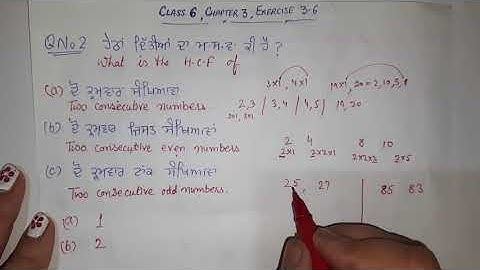 CLASS 6, CHAPTER 3, EXERCISE 3.6
Q No 2 ਹੇਠਾਂ ਦਿੱਤੀਆਂ ਦਾ ਮ.ਸ.ਵ ਕੀ ਹੈ ?
What is the H.C.F of
(a) ਦੋ ਕ੍ਰਮਵਾਰ ਸੰਖਿਆਵਾਂ
3x1, 4x1
Two consecutive numbers.
2,3 / 3,4 / 4,5 / 19,20
2x1, 3x1
(b) ਦੋ ਕ੍ਰਮਵਾਰ ਜਿਸਤ ਸੰਖਿਆਵਾਂ
2 4 8 10
Two consecutive even numbers
2x1 2x2x1 2x2x2 2x5
(c) ਦੋ ਕ੍ਰਮਵਾਰ ਟਾਂਕ ਸੰਖਿਆਵਾਂ
Two consecutive odd numbers.
25, 27 85 83
(a) 1
(b) 2